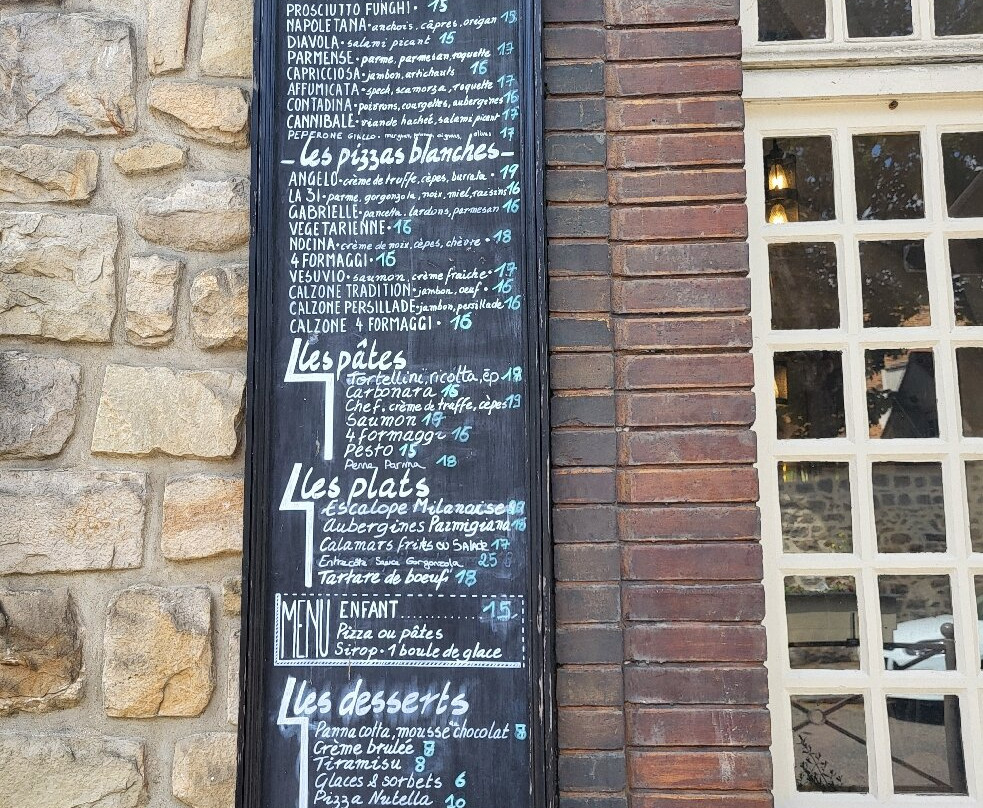 PROSCIUTTO FUNGHI • 15
NAPOLETANA • anchois, câpres, origan 15
DIAVOLA • salami picant 15
PARMENSE • parme, parmesan, roquette 17
CAPRICCIOSA • jambon, artichauts 16
AFFUMICATA • speck, scamorza, roquette 17
CONTADINA • poivrons, courgettes, aubergines 16
CANNIBALE • viande haché, salami picant 17
PEPERONE GIALLO • olives 17
– les pizzas blanches –
ANGELO • crème de truffe, cèpes, burrata • 19
LA 31 • parme, gorgonzola, noix, miel, raisins 16
GABRIELLE • pancetta, lardons, parmesan 16
VEGETARIENNE • 16
NOCINA • crème de noix, cèpes, chèvre • 18
4 FORMAGGI • 16
VESUVIO • saumon, crème fraiche • 17
CALZONE TRADITION • jambon, oeuf • 16
CALZONE PERSILLADE • jambon, persillade 16
CALZONE 4 FORMAGGI • 16
les pâtes
Tortellini, ricotta, ép 18
Carbonara 16
Chef, crème de truffe, cèpes 19
Saumon
4 formaggi 16
Pesto 15
Penne Parma 18
les plats
Escalope Milanaise
Aubergines Parmigiana 18
Calamars frites ou Salade 17
Entrecôte Sauce Gorgonzola 25
Tartare de boeuf 18
MENU ENFANT 15
Pizza ou pâtes
Sirop • 1 boule de glace
les desserts
Pannacotta, mousse chocolat 8
Crème brulée 8
Tiramisu 8
Glaces & sorbets 6
Pizza Nutella 10